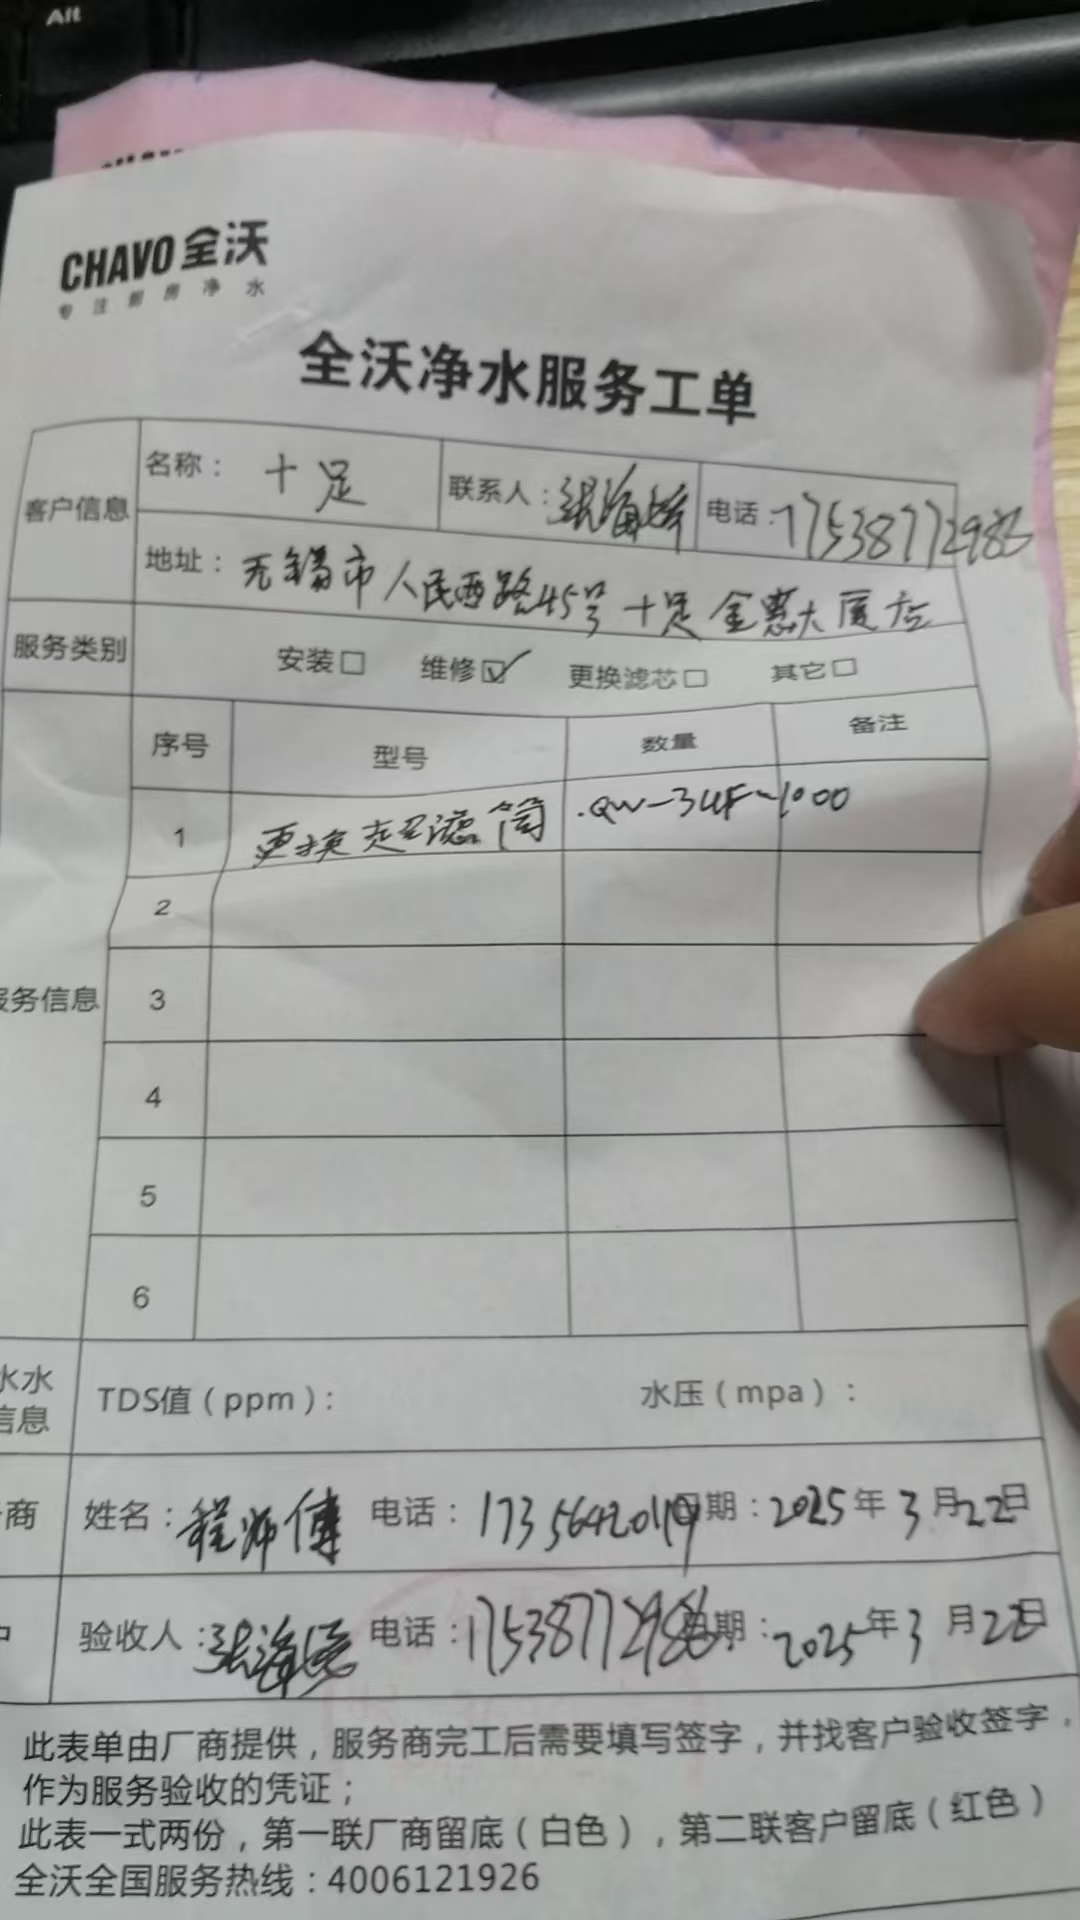 Alt
CHAVO 全沃
专注厨房净水
全沃净水服务工单
客户信息
名称：十足 联系人：张海 电话：17538772986
地址：无锡市人民西路45号十足金惠大厦店
服务类别 安装□ 维修☑ 更换滤芯□ 其它□
序号 型号 数量 备注
1 更换超滤筒 QW-3UF-1000
2
服务信息 3
4
5
6
水水
信息
TDS值（ppm）： 水压（mpa）：
商 姓名：程师傅 电话：17356420119 日期：2025年3月22日
验收人：张海 电话：17538772986 日期：2025年3月22日
此表单由厂商提供，服务商完工后需要填写签字，并找客户验收签字，
作为服务验收的凭证；
此表一式两份，第一联厂商留底（白色），第二联客户留底（红色）
全沃全国服务热线：4006121926